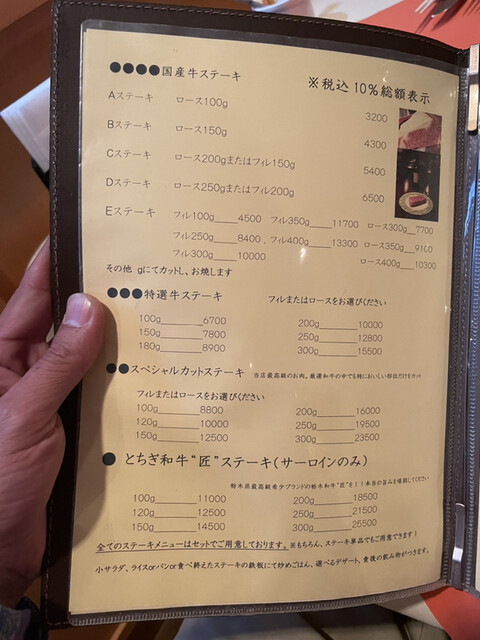 ●●●●国産牛ステーキ
※税込10%総額表示
Aステーキ ロース100g 3200
Bステーキ ロース150g 4300
Cステーキ ロース200gまたはフィレ150g 5400
Dステーキ ロース250gまたはフィレ200g 6500
Eステーキ フィレ100g____4500 フィレ350g____11700 ロース300g__7700
フィレ250g____8400 フィレ400g____13300 ロース350g__9100
フィレ300g____10000 ロース400g__10300
その他 gにてカットし、お焼します
●●●特選牛ステーキ フィレまたはロースをお選びください
100g______6700 200g______10000
150g______7800 250g______12800
180g______8900 300g______15500
●●スペシャルカットステーキ 当店最高級のお肉。厳選和牛の中でも特においしい部位だけをカット
フィレまたはロースをお選びください
100g______8800 200g______16000
120g______10000 250g______19500
150g______12500 300g______23500
● とちぎ和牛“匠”ステーキ(サーロインのみ)
栃木県最高級希少ブランドの栃木和牛“匠”を!!本当の旨みを堪能してください
100g______11000 200g______18500
120g______12500 250g______21500
150g______14500 300g______25500
全てのステーキメニューはセットでご用意しております。※もちろん、ステーキ単品でもご用意できます!
小サラダ、ライスorパンor食べ終えたステーキの鉄板にて炒めごはん、選べるデザート、食後の飲み物がつきます。